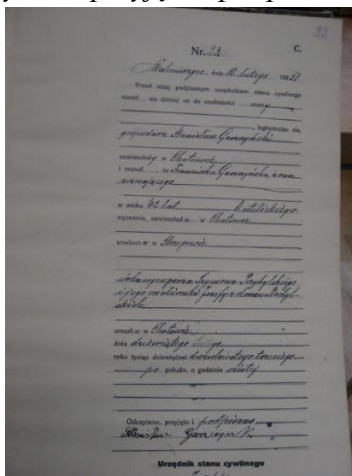 22
Nr. 22 C.
dnia 10. lutego 1923
Przed niżej podpisanym urzędnikiem stanu cywilnego
stawił się dzisiaj co do osobistości znany
legitymując się,
gospodarz Stanisław Garczyński
zamieszkały w Chotowie
i zeznał, że Franciszka Garczyńska, żona
zeznającego
w wieku 42 lat, katolickiego
wyznania, zamieszkała w Chotowie
urodzona w
Szymona Przybylskiego
i jego małżonki Józefy z domu
umarła w Chotowie
dnia dziewiątego lutego
roku tysiąc dziewięćset dwudziestego trzeciego
po połudn. o godzinie szóstej
Odczytano, przyjęto i podpisano
Stanisław Garczyński
Urzędnik stanu cywilnego